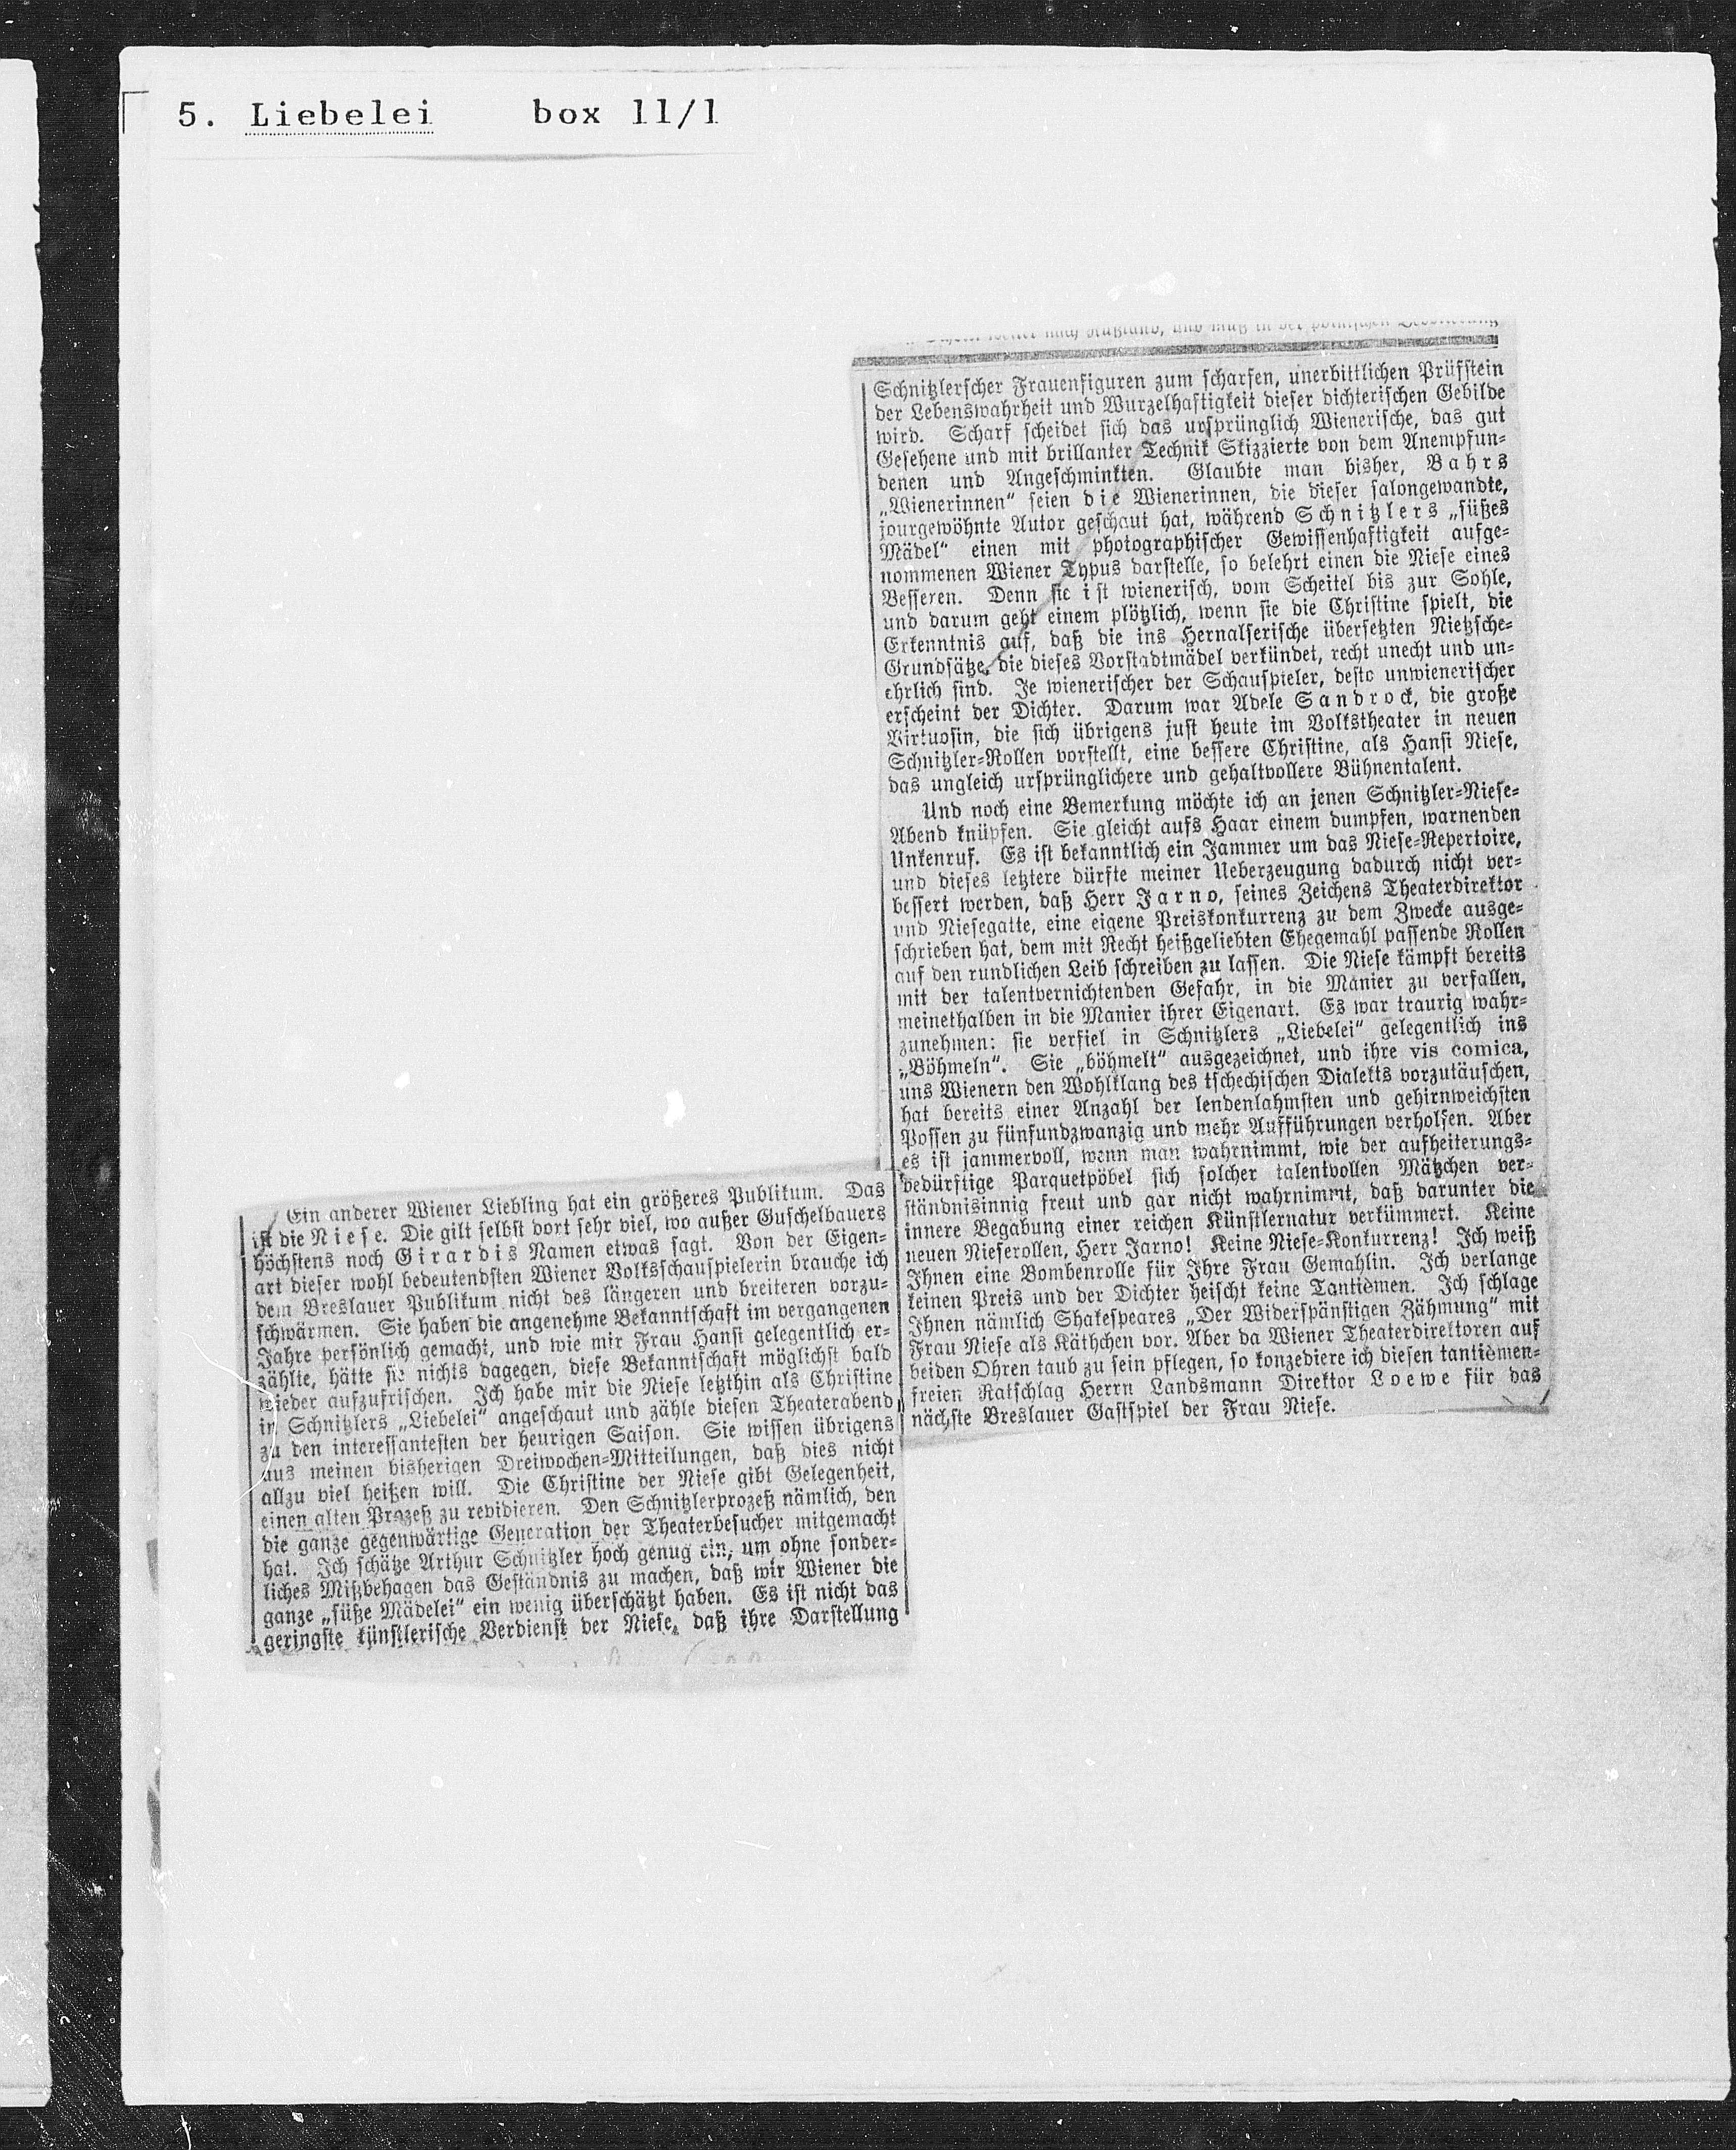 5. Liebelei box 11/1
Ein anderer Wiener Liebling hat ein größeres Publikum. Das
ist die Niese. Die gilt selbst dort sehr viel, wo außer Guschelbauers
höchstens noch Girardis Namen etwas sagt. Von der Eigen-
art dieser wohl bedeutendsten Wiener Volksschauspielerin brauche ich
dem Breslauer Publikum nicht des längeren und breiteren vorzu-
schwärmen. Sie haben die angenehme Bekanntschaft im vergangenen
Jahre persönlich gemacht, und wie mir Frau Hansi gelegentlich er-
zählte, hätte sie nichts dagegen, diese Bekanntschaft möglichst bald
wieder aufzufrischen. Ich habe mir die Niese letzthin als Christine
in Schnitzlers „Liebelei“ angeschaut und zähle diesen Theaterabend
zu den interessantesten der heurigen Saison. Sie wissen übrigens
aus meinen bisherigen Dreiwochen-Mitteilungen, daß dies nicht
allzu viel heißen will. Die Christine der Niese gibt Gelegenheit,
einen alten Prozeß zu revidieren. Den Schnitzlerprozeß nämlich, den
die ganze gegenwärtige Generation der Theaterbesucher mitgemacht
hat. Ich schätze Arthur Schnitzler hoch genug ein, um ohne sonder-
liches Mißbehagen das Geständnis zu machen, daß wir Wiener die
ganze „süße Mädelei“ ein wenig überschätzt haben. Es ist nicht das
geringste künstlerische Verdienst der Niese, daß ihre Darstellung
Schnitzlerscher Frauenfiguren zum scharfen, unerbittlichen Prüfstein
der Lebenswahrheit und Wurzelhaftigkeit dieser dichterischen Gebilde
wird. Scharf scheidet sich das ursprünglich Wienerische, das gut
Gesehene und mit brillanter Technik Skizzierte von dem Anempfun-
denen und Angeschminkten. Glaubte man bisher, Bahrs
„Wienerinnen“ seien die Wienerinnen, die dieser salongewandte,
jourgewöhnte Autor geschaut hat, während Schnitzlers „süßes
Mädel“ einen mit photographischer Gewissenhaftigkeit aufge-
nommenen Wiener Typus darstelle, so belehrt einen die Niese eines
Besseren. Denn sie ist wienerisch, vom Scheitel bis zur Sohle,
und darum geht einem plötzlich, wenn sie die Christine spielt, die
Erkenntnis auf, daß die ins Hernalserische übersetzten Nietzsche-
Grundsätze, die dieses Vorstadtmädel verkündet, recht unecht und un-
ehrlich sind. Je wienerischer der Schauspieler, desto unwienerischer
erscheint der Dichter. Darum war Adele Sandrock, die große
Virtuosin, die sich übrigens just heute im Volkstheater in neuen
Schnitzler-Rollen vorstellt, eine bessere Christine, als Hansi Niese,
das ungleich ursprünglichere und gehaltvollere Bühnentalent.
Und noch eine Bemerkung möchte ich an jenen Schnitzler-Niese-
Abend knüpfen. Sie gleicht aufs Haar einem dumpfen, warnenden
Unkenruf. Es ist bekanntlich ein Jammer um das Niese-Repertoire,
und dieses letztere dürfte meiner Ueberzeugung dadurch nicht ver-
bessert werden, daß Herr Jarno, seines Zeichens Theaterdirektor
und Niesegatte, eine eigene Preiskonkurrenz zu dem Zwecke ausge-
schrieben hat, dem mit Recht heißgeliebten Ehegemahl passende Rollen
auf den rundlichen Leib schreiben zu lassen. Die Niese kämpft bereits
mit der talentvernichtenden Gefahr, in die Manier zu verfallen,
meinethalben in die Manier ihrer Eigenart. Es war traurig wahr-
zunehmen: sie verfiel in Schnitzlers „Liebelei“ gelegentlich ins
„Böhmeln“. Sie „böhmelt“ ausgezeichnet, und ihre vis comica,
uns Wienern den Wohlklang des tschechischen Dialekts vorzutäuschen,
hat bereits einer Anzahl der lendenlahmsten und gehirnweichsten
Possen zu fünfundzwanzig und mehr Aufführungen verholfen. Aber
es ist jammervoll, wenn man wahrnimmt, wie der aufheiterungs-
bedürftige Parquetpöbel sich solcher talentvollen Mätzchen ver-
ständnisinnig freut und gar nicht wahrnimmt, daß darunter die
innere Begabung einer reichen Künstlernatur verkümmert. Keine
neuen Nieserollen, Herr Jarno! Keine Niese-Konkurrenz! Ich weiß
Ihnen eine Bombenrolle für Ihre Frau Gemahlin. Ich verlange
keinen Preis und der Dichter heischt keine Tantièmen. Ich schlage
Ihnen nämlich Shakespeares „Der Widerspänstigen Zähmung“ mit
Frau Niese als Käthchen vor. Aber da Wiener Theaterdirektoren auf
beiden Ohren taub zu sein pflegen, so konzediere ich diesen tantièmen-
freien Ratschlag Herrn Landsmann Direktor Loewe für das
nächste Breslauer Gastspiel der Frau Niese.